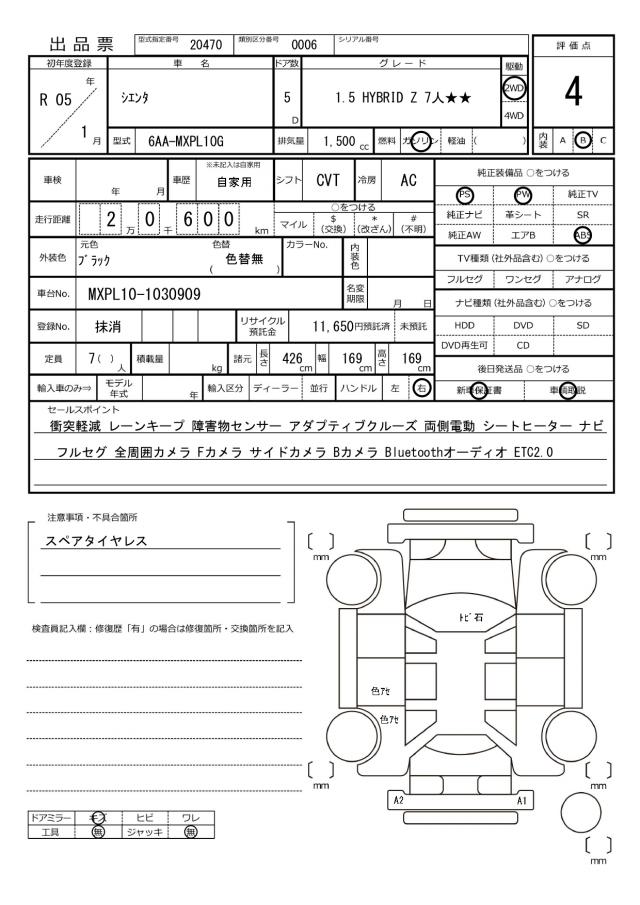 出品票 型式指定番号 20470 類別区分番号 0006 シリアル番号
評価点
4
初年度登録 車名 ドア数 グレード 駆動
R 05 年 1 月
シエンタ 5 D 1.5 HYBRID Z 7人★★ 2WD
4WD
型式 6AA-MXPL10G 排気量 1,500 cc 燃料 ガソリン 軽油 ( )
内装 A B C
車検 年 月 車歴 ※未記入は自家用 自家用 シフト CVT 冷房 AC
純正装備品 ○をつける
PS PW 純正TV
純正ナビ 革シート SR
純正AW エアB ABS
走行距離 2 万 0 千 6 0 0 km
○をつける
マイル $(交換) *(改ざん) #(不明)
外装色 元色 ブラック 色替 ( 色替無 ) カラーNo. 内装色
TV種類 (社外品含む) ○をつける
フルセグ ワンセグ アナログ
車台No. MXPL10-1030909 名変期限 月 日
ナビ種類 (社外品含む) ○をつける
HDD DVD SD
DVD再生可 CD
登録No. 抹消 リサイクル預託金 11,650円預託済 未預託
定員 7 ( ) 人 積載量 kg 諸元 長さ 426 cm 幅 169 cm 高さ 169 cm
後日発送品 ○をつける
新車保証書 車輌取説
輸入車のみ⇒ モデル年式 年 輸入区分 ディーラー 並行 ハンドル 左 右
セールスポイント
衝突軽減 レーンキープ 障害物センサー アダプティブクルーズ 両側電動 シートヒーター ナビ
フルセグ 全周囲カメラ Fカメラ サイドカメラ Bカメラ Bluetoothオーディオ ETC2.0
注意事項・不具合箇所
スペアタイヤレス
検査員記入欄：修復歴「有」の場合は修復箇所・交換箇所を記入
mm
mm
トビ石
色アセ
色アセ
mm
mm
A2 A1
mm
ドアミラー キズ ヒビ ワレ
工具 無 ジャッキ 無